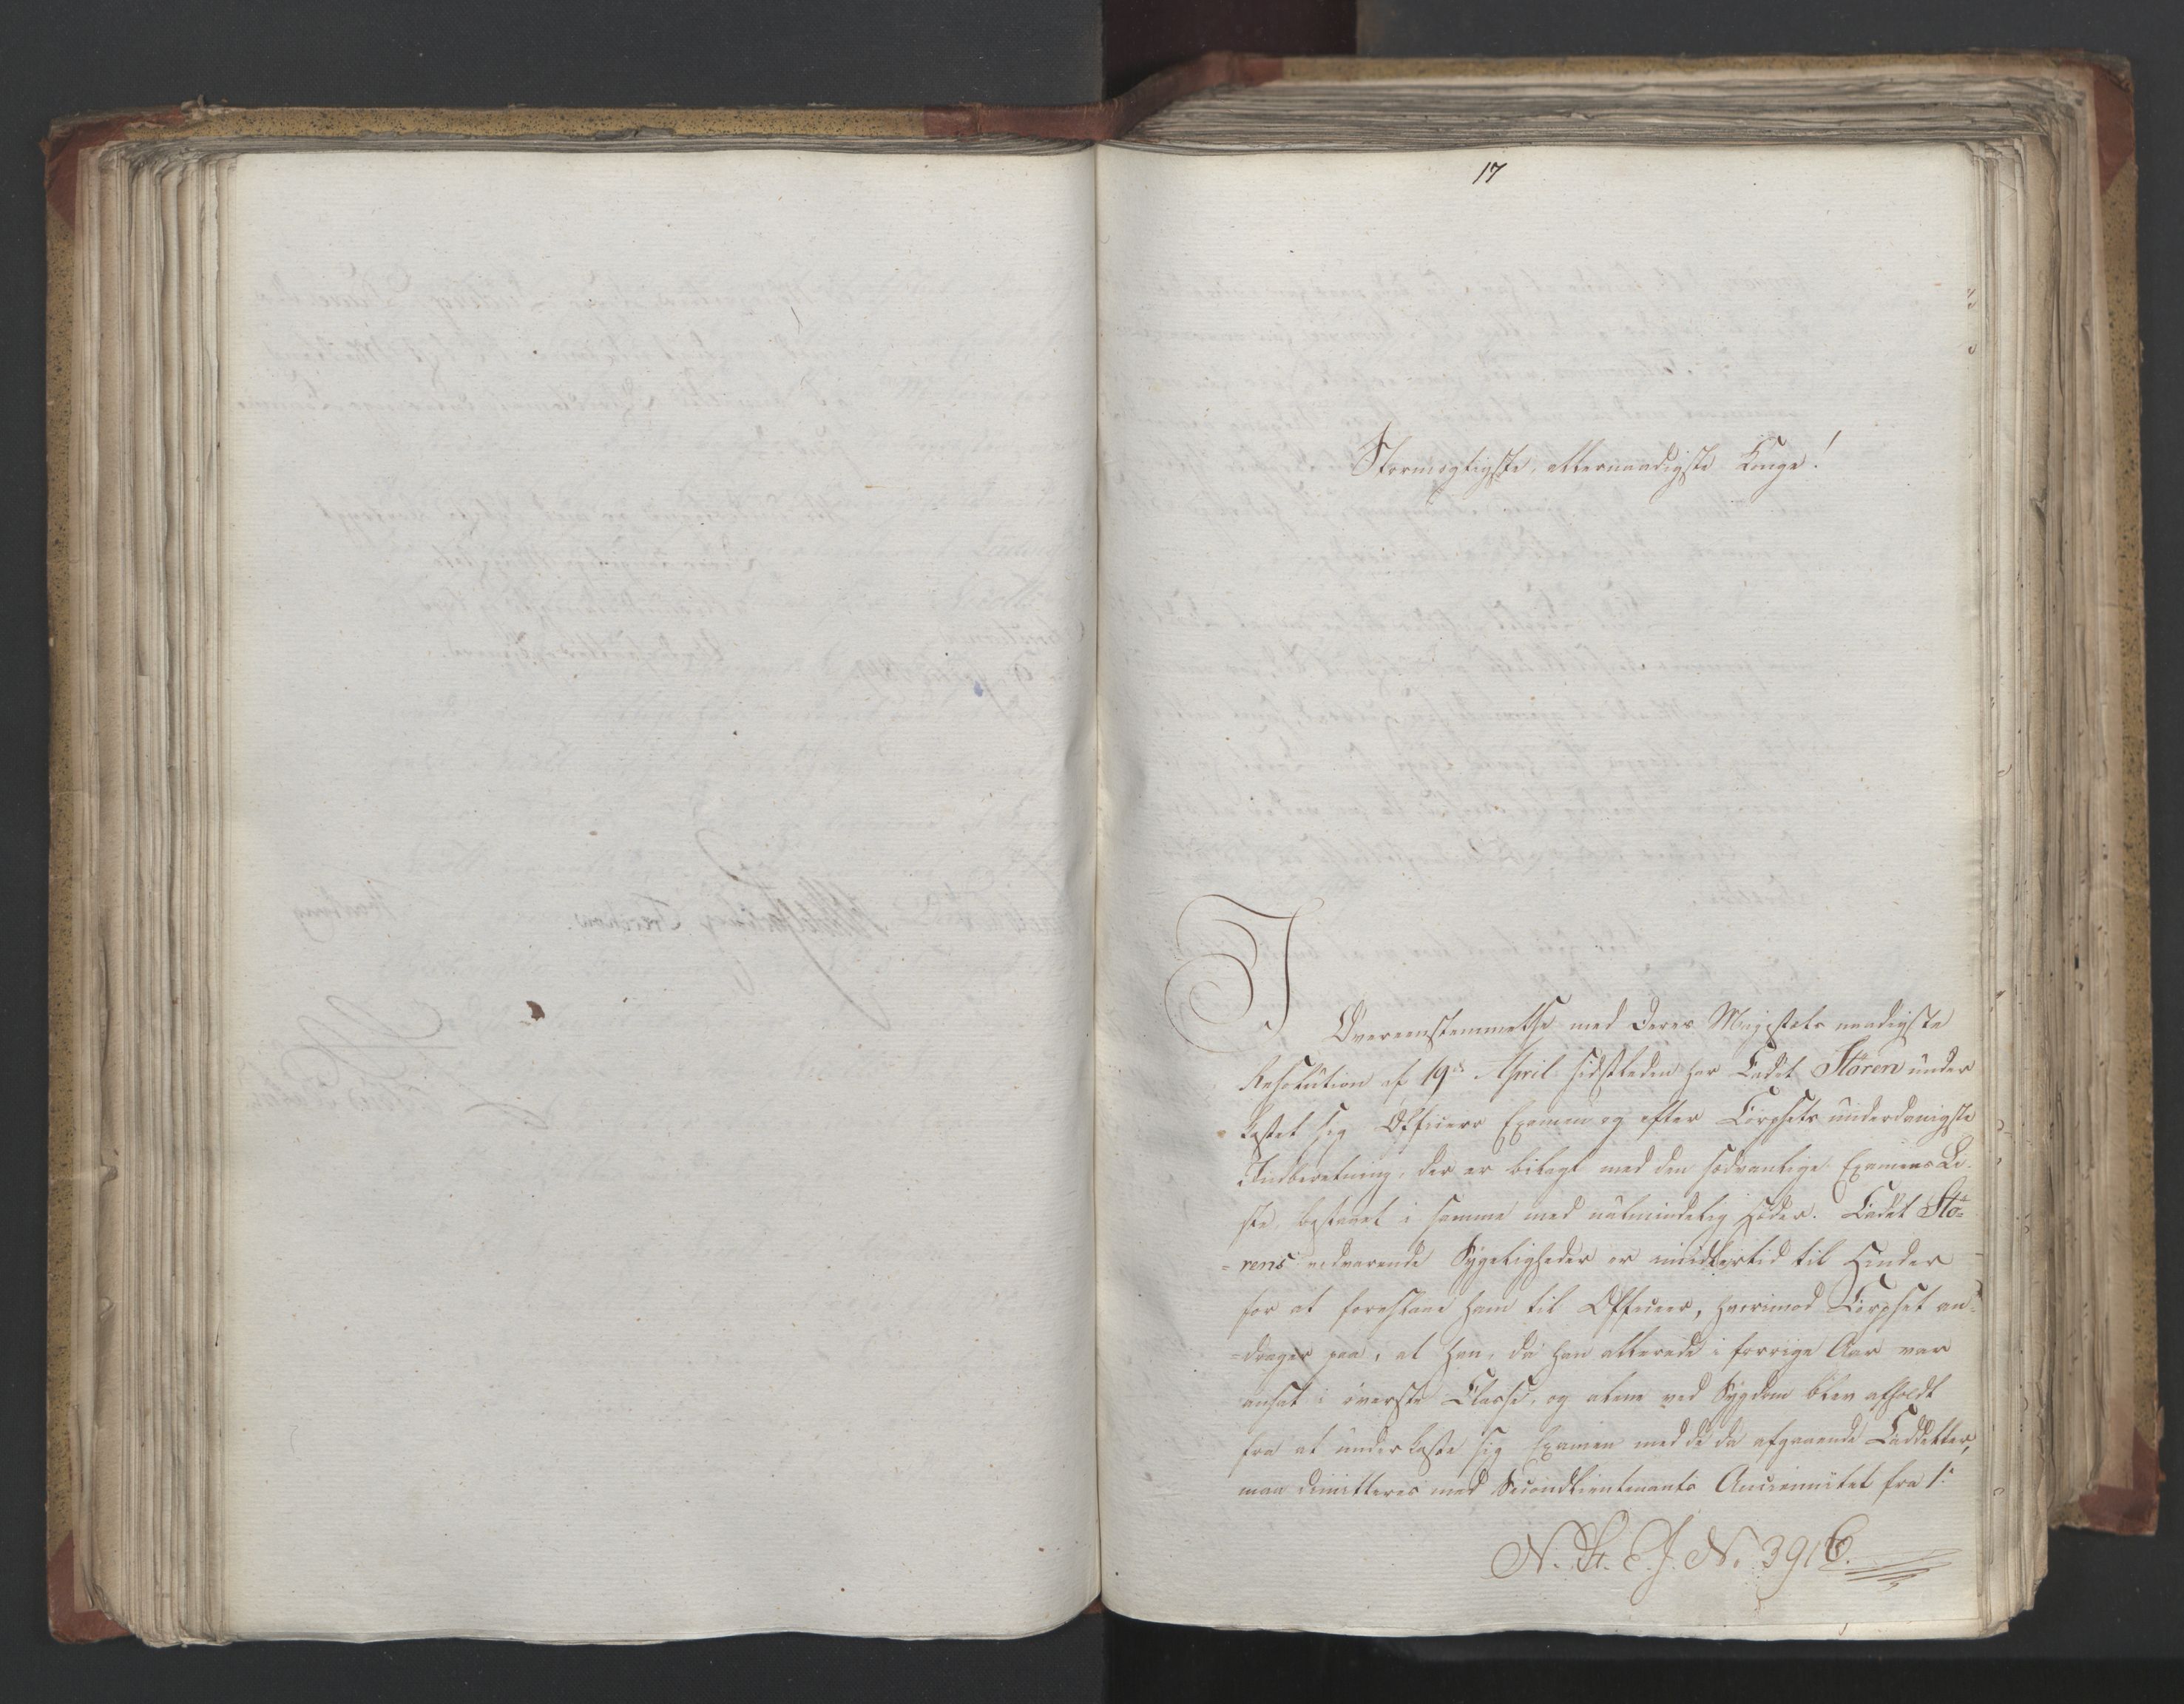 17
Stormægtigste, allernaadigste Konge!
I
Overeensstemmelse med Deres Majestæts naadigste
Resolution af 19de April sidstleden har Cadet Stören under
kastet sig Officiers Examen og efter Corpsets underdanigste
Indberetning, der er bilagt med den sædvanlige Examens Li-
ste, bestaaet i samme med ualmindelig Hæder. Cadet Stö=
=rens vedvarende Sygeligheder er imidlertid til Hinder
for at foreslaae ham til Officeer, hvorimod Corpset an=
=drager paa, at han, da han allerede i forrige Aar var
ansat i överste Classe, og alene ved Sygdom blev afholdt
fra at underkaste sig Examen med de da afgaaende Cadetter,
maa dimitteres med Secondlieutenants Anciennitet fra 1:
N. St. E. J. No. 3916.